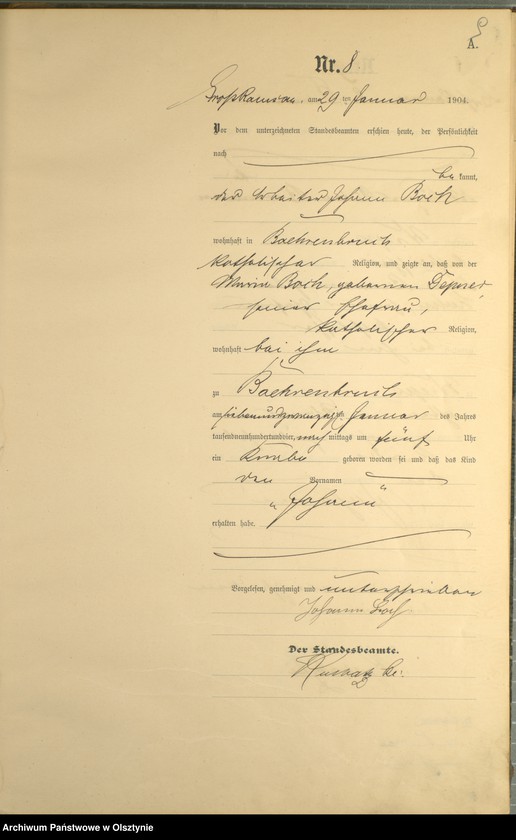 A.
Nr. 8
Groß Ramsau, am 29 ten Januar 1904.
Vor dem unterzeichneten Standesbeamten erschien heute, der Persönlichkeit
nach
be kannt,
der Arbeiter Johann Bock
wohnhaft in Baehrenbruch
katholischer Religion, und zeigte an, daß von der
Maria Bock, geborenen
seiner Ehefrau,
katholischer Religion,
wohnhaft bei ihm
zu Baehrenbruch
am siebenundzwanzigsten Januar des Jahres
tausendneunhundertundvier, nachmittags um fünf Uhr
ein Knabe geboren worden sei und daß das Kind
den Vornamen
„Johann“
erhalten habe.
Vorgelesen, genehmigt und unterschrieben
Johann Bock
Der Standesbeamte.
Archiwum Państwowe w Olsztynie